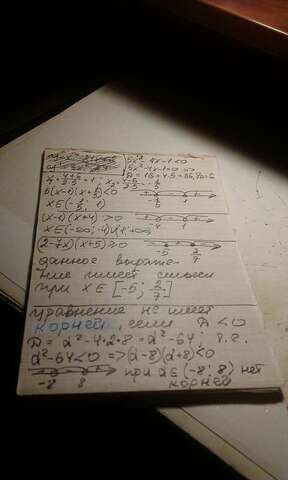 5x² - 4x - 1 < 0
5x² - 4x - 1 = 0 =>
D = 16 + 4·5 = 36, √D = 6
x₁ = (4+6)/(2·5) = 1; x₂ = (4-6)/(2·5) = -1/5
5(x-1)(x+1/5) < 0
-1/5 1
x ∈ (-1/5; 1)
(x-1)(x+4) > 0
x ∈ (-∞; -4) (1; +∞)
(2-7x)(x+5) ≥ 0
-5 2/7
данное выраже-
ние имеет смысл
при x ∈ [-5; 2/7]
уравнение не имеет
корней, если D < 0
D = a² - 4·2·8 = a² - 64
a² - 64 < 0 => (a-8)(a+8) < 0
-8 8 при a ∈ (-8; 8) нет
корней